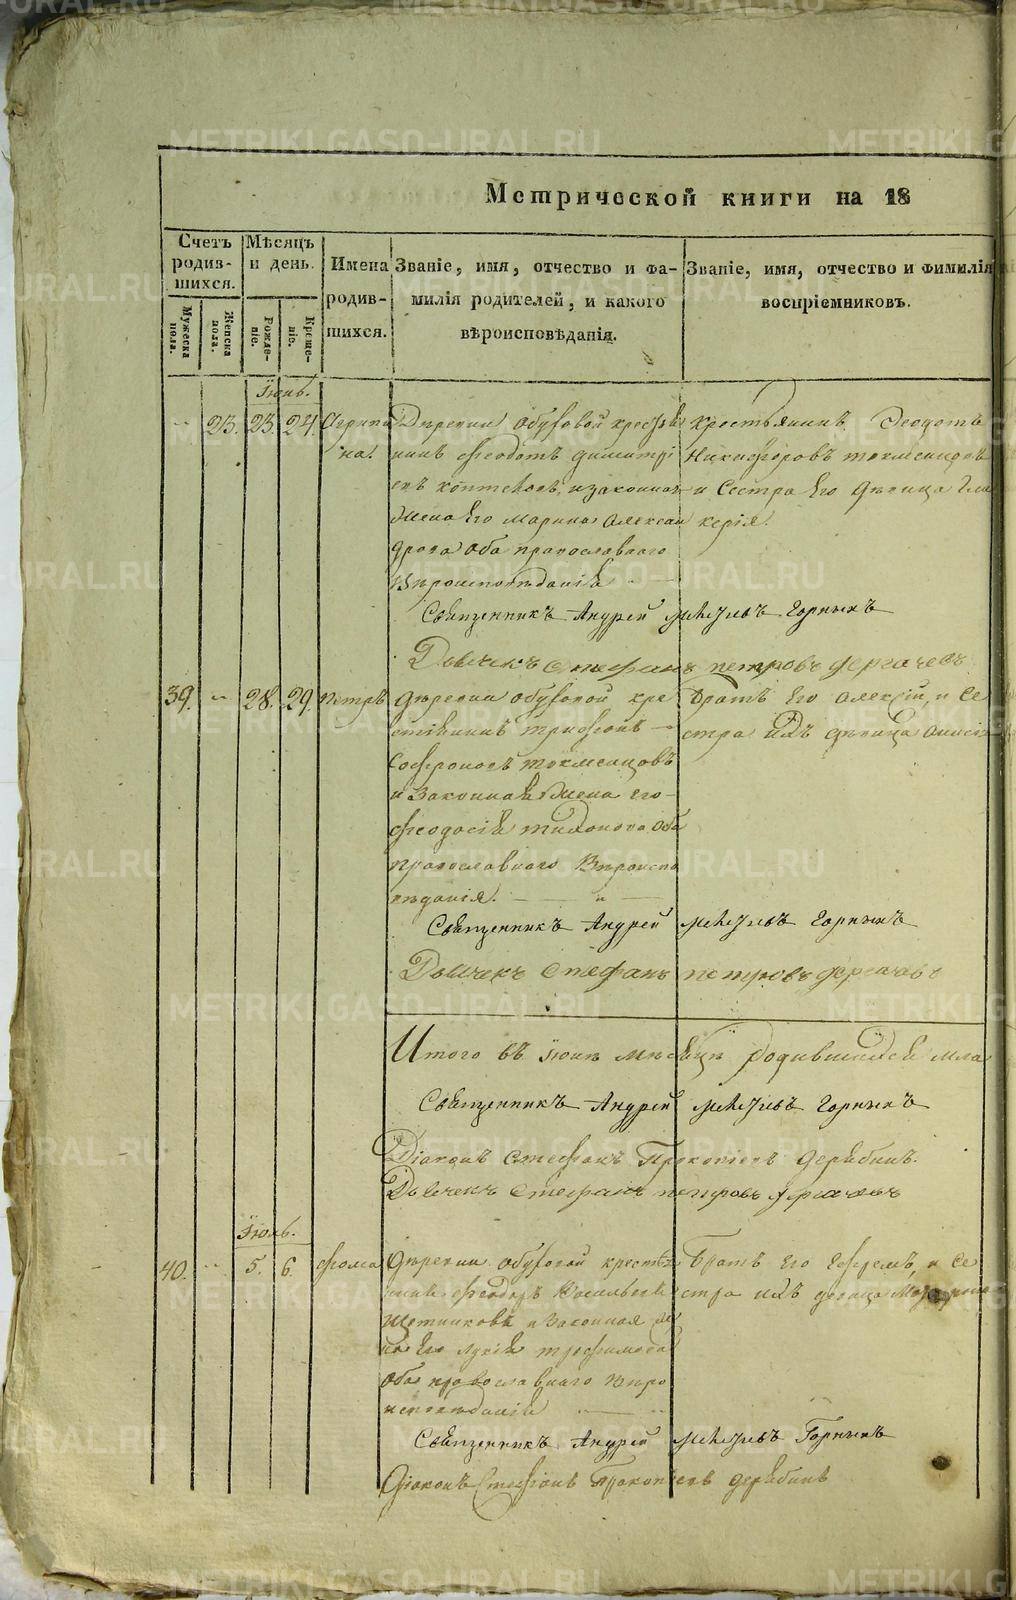 METRIKI.GASO-URAL.RU
Метрической книги на 18
Счетъ родив-шихся.
Мужеска пола.
Женска пола.
Мѣсяцъ и день.
Рожде-ніе.
Креще-ніе.
Имена родив-шихся.
Званіе, имя, отчество и фа-
милія родителей, и какого
вѣроисповѣданія.
Званіе, имя, отчество и фимилія
воспріемниковъ.
Іюнь.
23. 23. 24. Агрипи
на.
Деревни Обуховой крестья
нинъ Феодотъ Димитрі
евъ и законная
жена его Марина Алексан
дрова оба православнаго
вѣроисповѣданія
Крестьянинъ Феодотъ
Никифоровъ Токменцовъ
и сестра его дѣвица Гли
керія.
Священникъ Андрей Горныхъ
Дьячекъ Стефанъ Петровъ Дергачевъ
39. 28. 29. Петръ
Деревни Обуховой кре
стьянинъ Трифонъ
Софроновъ Токменцовъ
и законная жена его
Феодосія Тихонова оба
православнаго вѣроиспо
вѣданія.
Братъ его Алексій, и се
стра ихъ дѣвица Анисі
Священникъ Андрей Горныхъ
Дьячекъ Стефанъ Петровъ Дергачевъ
Итого въ Іюнѣ мѣсяцѣ родившихся мла
Священникъ Андрей Горныхъ
Діаконъ Стефанъ Прокопьевъ Дерябинъ.
Дьячекъ Стефанъ Петровъ Дергачевъ
Іюль.
40. 5. 6. Фома
Деревни Обуховой крестья
нинъ Феодоръ Васильевъ
Щетниковъ и законная же
на его Лукія Трофимова
оба православнаго вѣро
исповѣданія
Братъ его Ефремъ, и се
стра ихъ девица
Священникъ Андрей Горныхъ
Діаконъ Стефанъ Прокопьевъ Дерябинъ